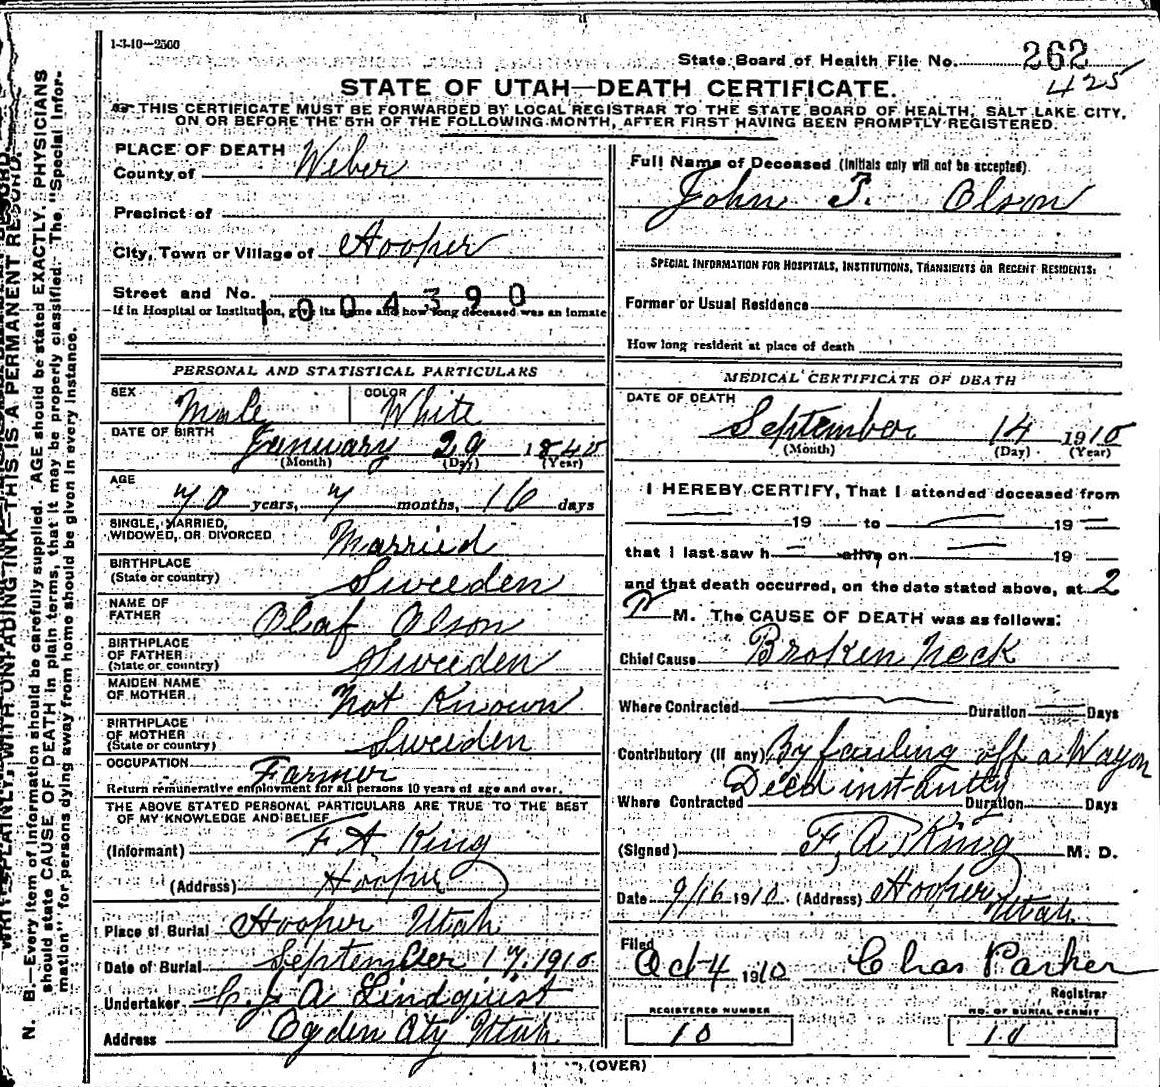 1-3-10—2500
State Board of Health File No. 262
425
STATE OF UTAH—DEATH CERTIFICATE.
THIS CERTIFICATE MUST BE FORWARDED BY LOCAL REGISTRAR TO THE STATE BOARD OF HEALTH, SALT LAKE CITY,
ON OR BEFORE THE 5TH OF THE FOLLOWING MONTH, AFTER FIRST HAVING BEEN PROMPTLY REGISTERED.
PLACE OF DEATH
County of Weber
Precinct of
City, Town or Village of Hooper
Street and No.
1004390
If in Hospital or Institution, give its name and how long deceased was an inmate
PERSONAL AND STATISTICAL PARTICULARS
SEX Male COLOR White
DATE OF BIRTH January 29 1840
(Month) (Day) (Year)
AGE 70 years, 7 months, 16 days
SINGLE, MARRIED,
WIDOWED, OR DIVORCED Married
BIRTHPLACE
(State or country) Sweeden
NAME OF
FATHER Olaf Olson
BIRTHPLACE
OF FATHER
(State or country) Sweeden
MAIDEN NAME
OF MOTHER Not Known
BIRTHPLACE
OF MOTHER
(State or country) Sweeden
OCCUPATION Farmer
Return remunerative employment for all persons 10 years of age and over.
THE ABOVE STATED PERSONAL PARTICULARS ARE TRUE TO THE BEST
OF MY KNOWLEDGE AND BELIEF
(Informant) F. A. King
(Address) Hooper
Place of Burial Hooper Utah
Date of Burial September 17, 1910
Undertaker C. J. A Lindquist
Address Ogden City Utah
Full Name of Deceased (Initials only will not be accepted)
John T. Olson
SPECIAL INFORMATION FOR HOSPITALS, INSTITUTIONS, TRANSIENTS OR RECENT RESIDENTS:
Former or Usual Residence
How long resident at place of death
MEDICAL CERTIFICATE OF DEATH
DATE OF DEATH
September 14 1910
(Month) (Day) (Year)
I HEREBY CERTIFY, That I attended deceased from
19 to 19
that I last saw h alive on 19
and that death occurred, on the date stated above, at 2
P M. The CAUSE OF DEATH was as follows:
Chief Cause Broken Neck
Where Contracted Duration Days
Contributory (if any) By fauling off a Wagon
Died instantly
Where Contracted Duration Days
(Signed) F. A. King M. D.
Date 9/16 1910 (Address) Hooper
Utah
Filed
Oct 4 1910 Chas Parker
Registrar
REGISTERED NUMBER
10
NO. OF BURIAL PERMIT
11
(OVER)
WRITE PLAINLY, WITH UNFADING INK—THIS IS A PERMANENT RECORD.
N. B.—Every item of information should be carefully supplied. AGE should be stated EXACTLY. PHYSICIANS
should state CAUSE OF DEATH in plain terms, that it may be properly classified. The "Special Infor-
mation" for persons dying away from home should be given in every instance.